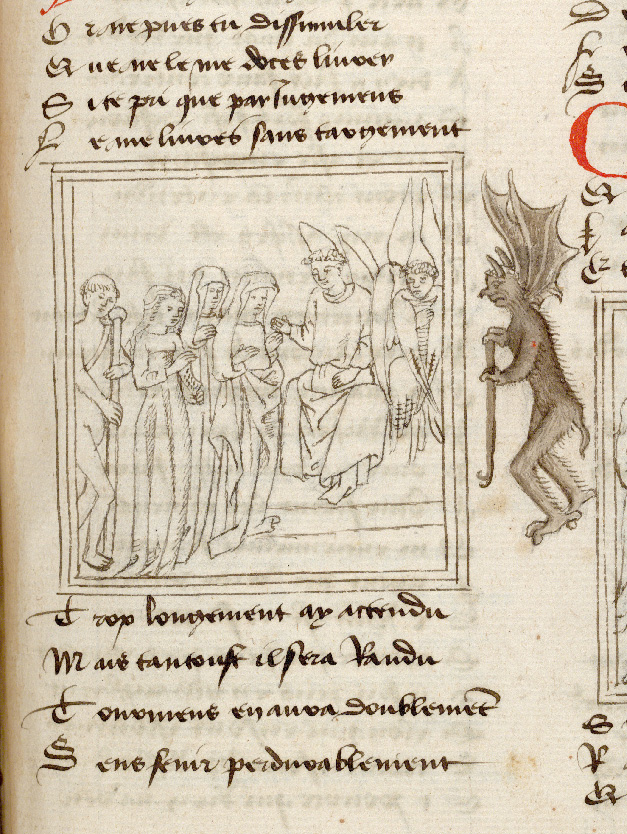 Or ne pues tu dissimuler
Que ne le me doies livrer
Si te pri que par Jugemens
Le me livres sans targement
Trop longement ay attendu
Mais tantoust il sera Randu
Tourmens en aura doublemēt
Sens fenir perdurablement
D
S
C
S
R